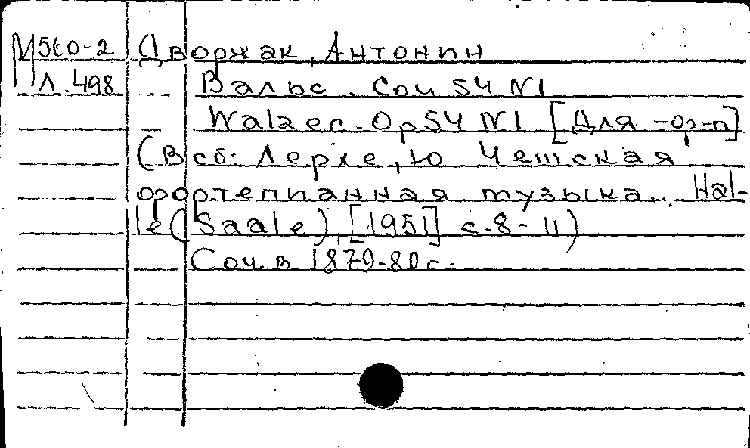 М560-2 Дворжак, Антонин
Л.498 Вальс. Соч 54 №1
Walzer. Op 54 №1 [Для ф-п]
(В сб: Лерхе, Ю Чешская
фортепианная музыка. Hal-
le (Saale), [1951] с. 8-11)
Соч. в 1879-80г.